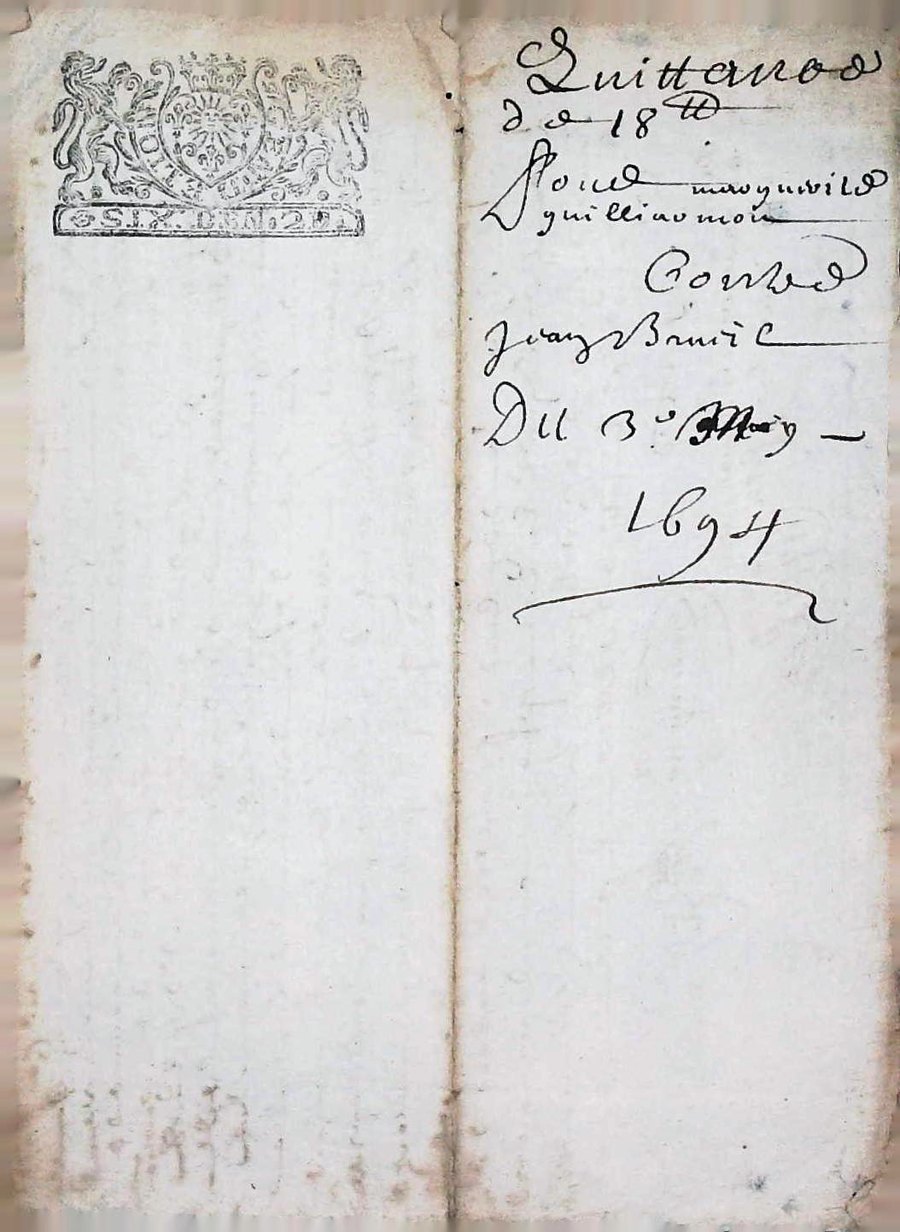 SIX. DEN. 
Quittance
de 18 ₶
Pour marguerite
guilliaumon
Contre
Jean Brueil
Du 3e May
1694